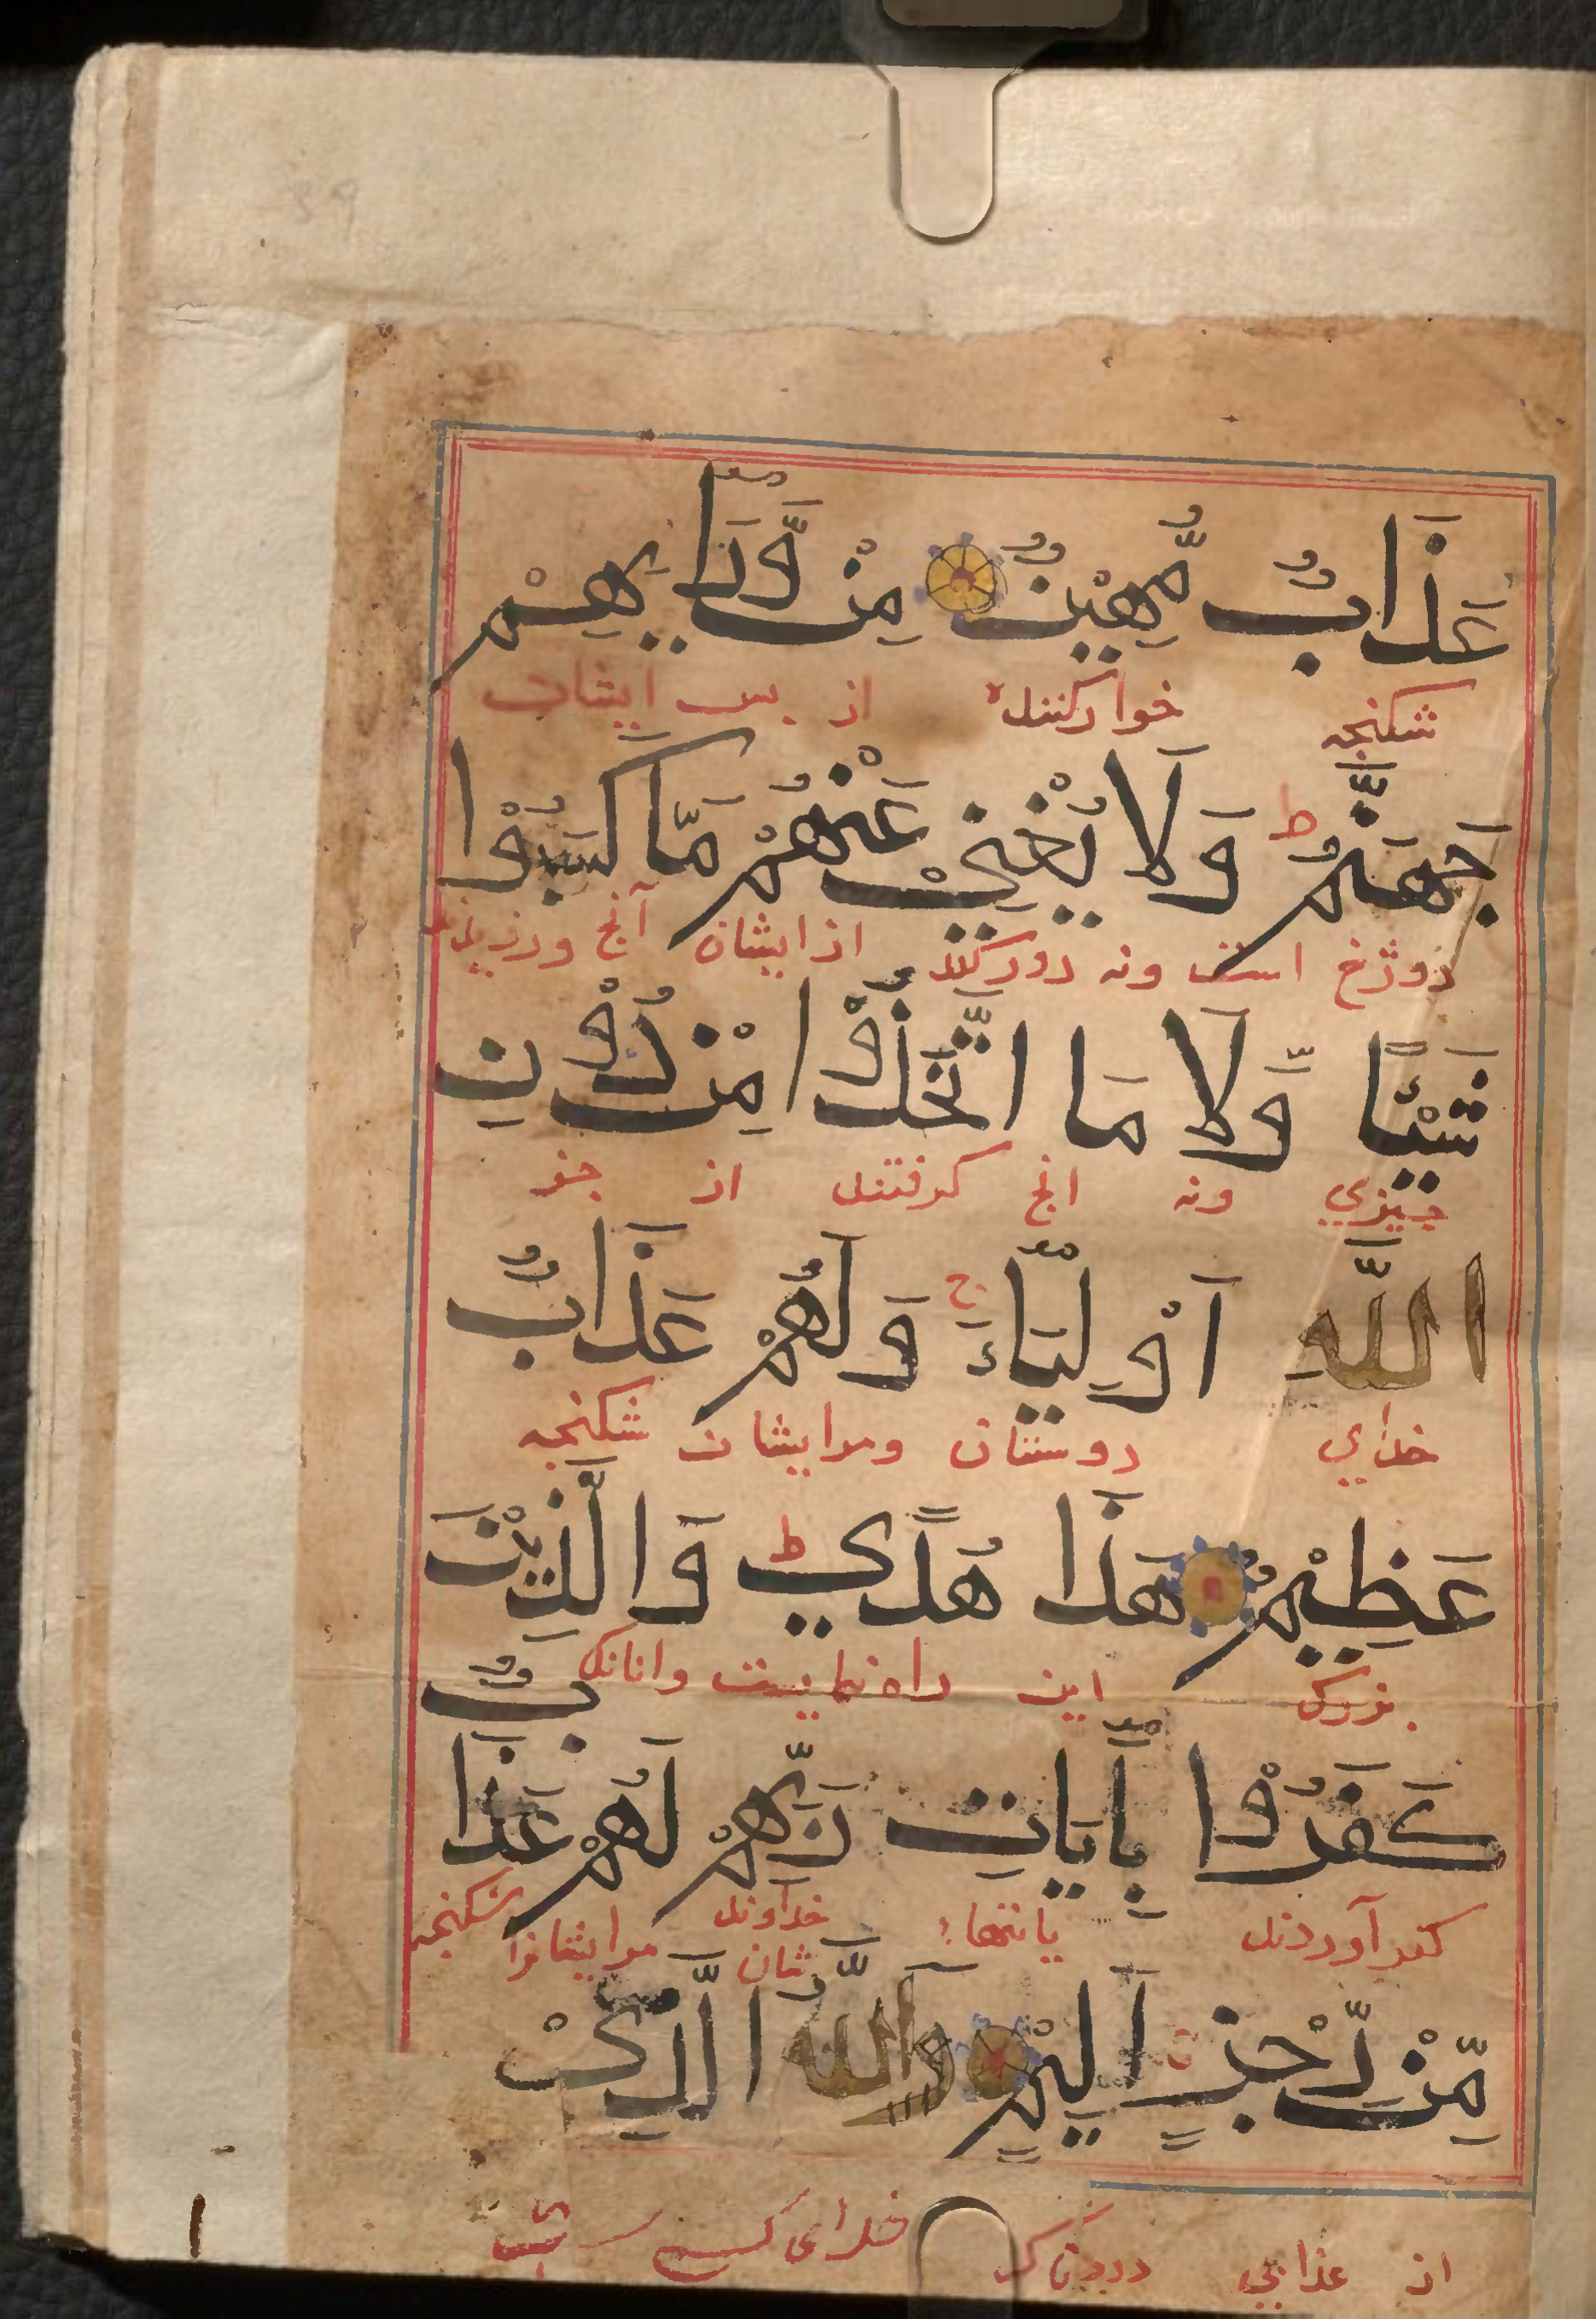 عَذَابٌ مُّهِينٌ مِنْ وَّرَآيِٕهِمْ
شكنجه خوار كننده از بس ايشان
جَهَنَّمُ ط وَلَا يُغْنِيْ عَنْهُمْ مَّا كَسَبُوْا
دوزخ است ونه دور كند از ايشان آنج ورزيدند
شَيْئًا وَّلَا مَا اتَّخَذُوْا مِنْ دُوْنِ
چيزي ونه انج كرفتند از جز
اللَّهِ اَوْلِيَآءَ ج وَلَهُمْ عَذَابٌ
خداي دوستان ومر ايشان شكنجه
عَظِيْمٌ هَذَا هُدًي ط وَالَّذِيْنَ
بزرك اين راه نماييست وانانك
كَفَرُوْا بِآيَاتِ رَبِّهِمْ لَهُمْ عَذَابٌ
كفر آوردند خداوند شان مر ايشانرا شكنجه
مِّنْ رِّجْزٍ اَلِيْمٍ اَللَّهُ الَّذِيْ
از عذابي دردناك خداى